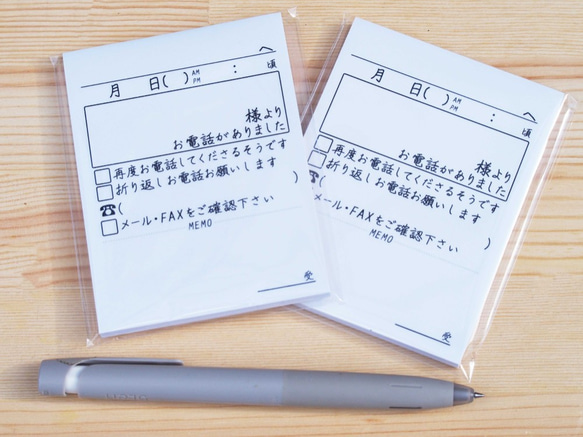 へ
月 日( ) AM PM : 頃
様より
お電話がありました
再度お電話してくださるそうです
折り返しお電話お願いします
☎( )
メール・FAXをご確認下さい
MEMO
受
へ
月 日( ) AM PM : 頃
様より
お電話がありました
再度お電話してくださるそうです
折り返しお電話お願いします
☎( )
メール・FAXをご確認下さい
MEMO
受